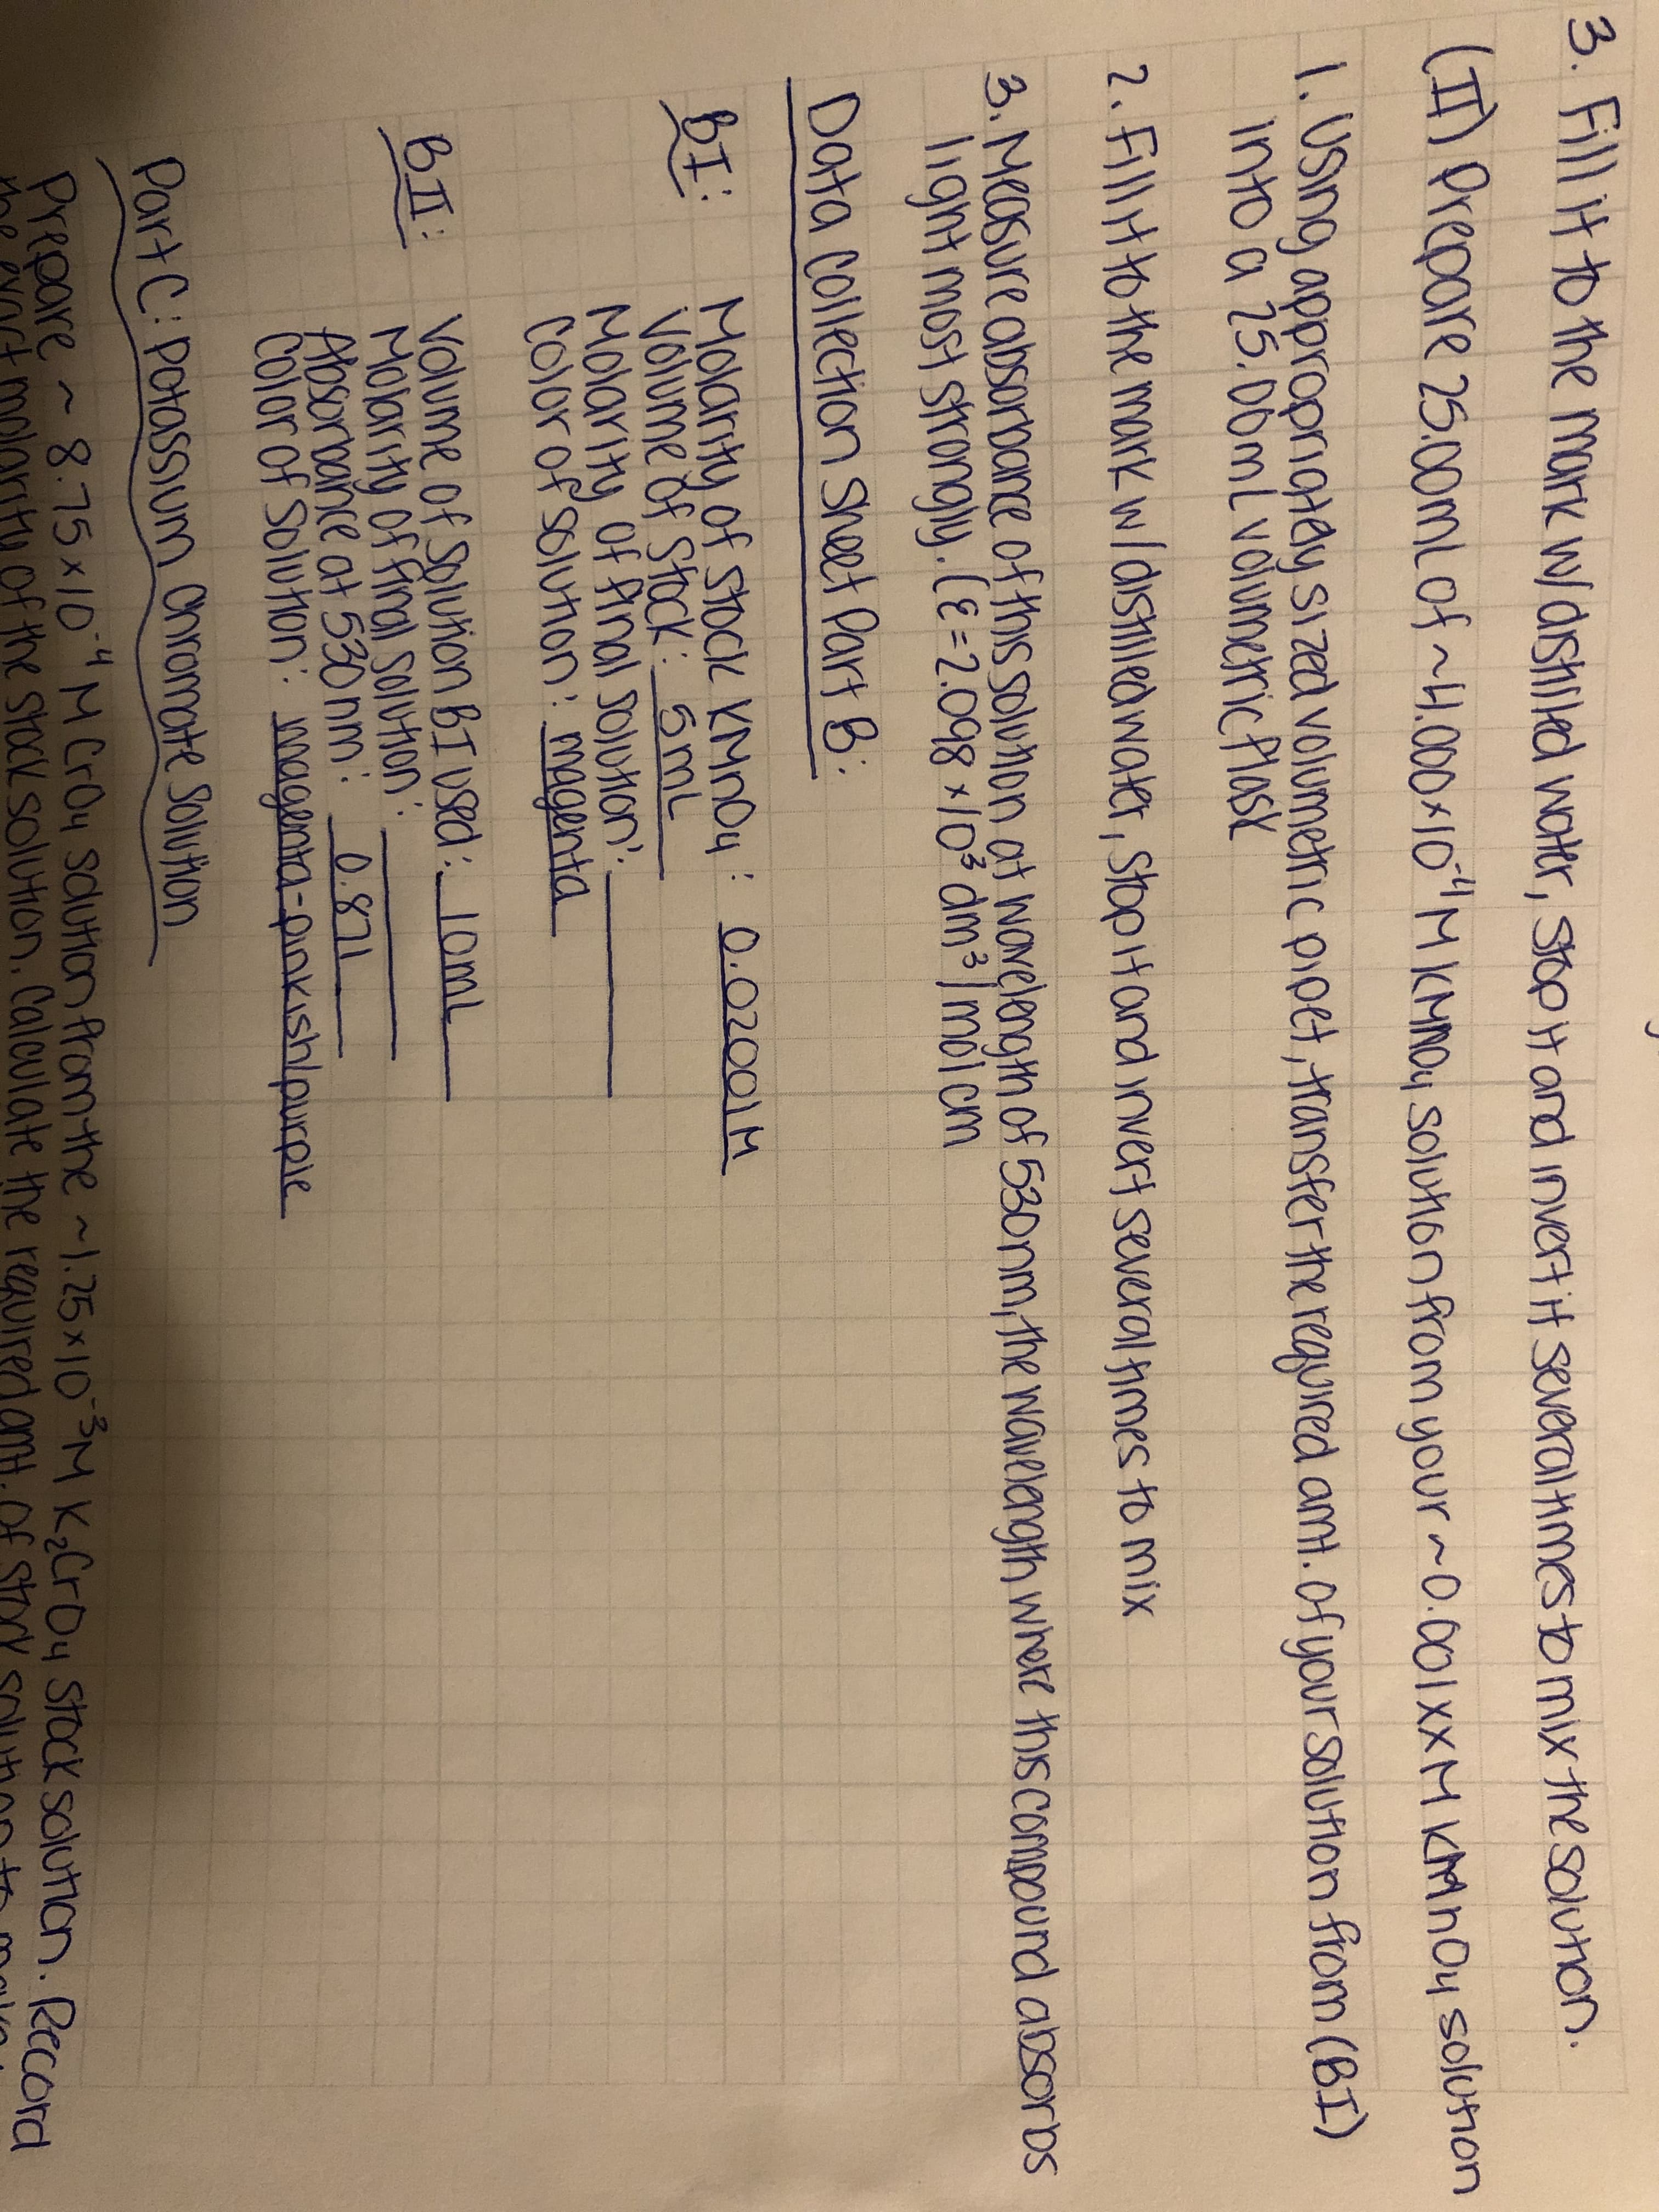 3. Fill it to the mark w/ distilled water, stop it and invert it several times to mix the solution.
(II) Prepare 25.00mL of ~4.000×10⁻⁴ M KMnO₄ solution from your ~0.001xx M KMnO₄ solution
1. Using appropriately sized volumetric pipet, transfer the required amt. of your solution from (BI)
into a 25.00mL volumetric flask
2. Fill it to the mark w/ distilled water, stop it and invert several times to mix
3. Measure absorbance of this solution at wavelength of 530nm, the wavelength where this compound absorbs
light most strongly. (ε = 2.098 × 10³ dm³/mol cm
Data Collection Sheet Part B:
BI: Molarity of stock KMnO₄: 0.02001M
Volume of Stock: 5mL
Molarity of final solution:
Color of solution: magenta
BII: Volume of Solution BI used: 10mL
Molarity of final solution:
Absorbance at 530nm: 0.871
Color of solution: magenta-pinkish/purple
Part C: Potassium Chromate Solution
Prepare ~ 8.75 × 10⁻⁴ M CrO₄ solution from the ~1.25×10⁻³M K₂CrO₄ stock solution. Record
the exact molarity of the stock solution. Calculate the required amt. of stock solution to